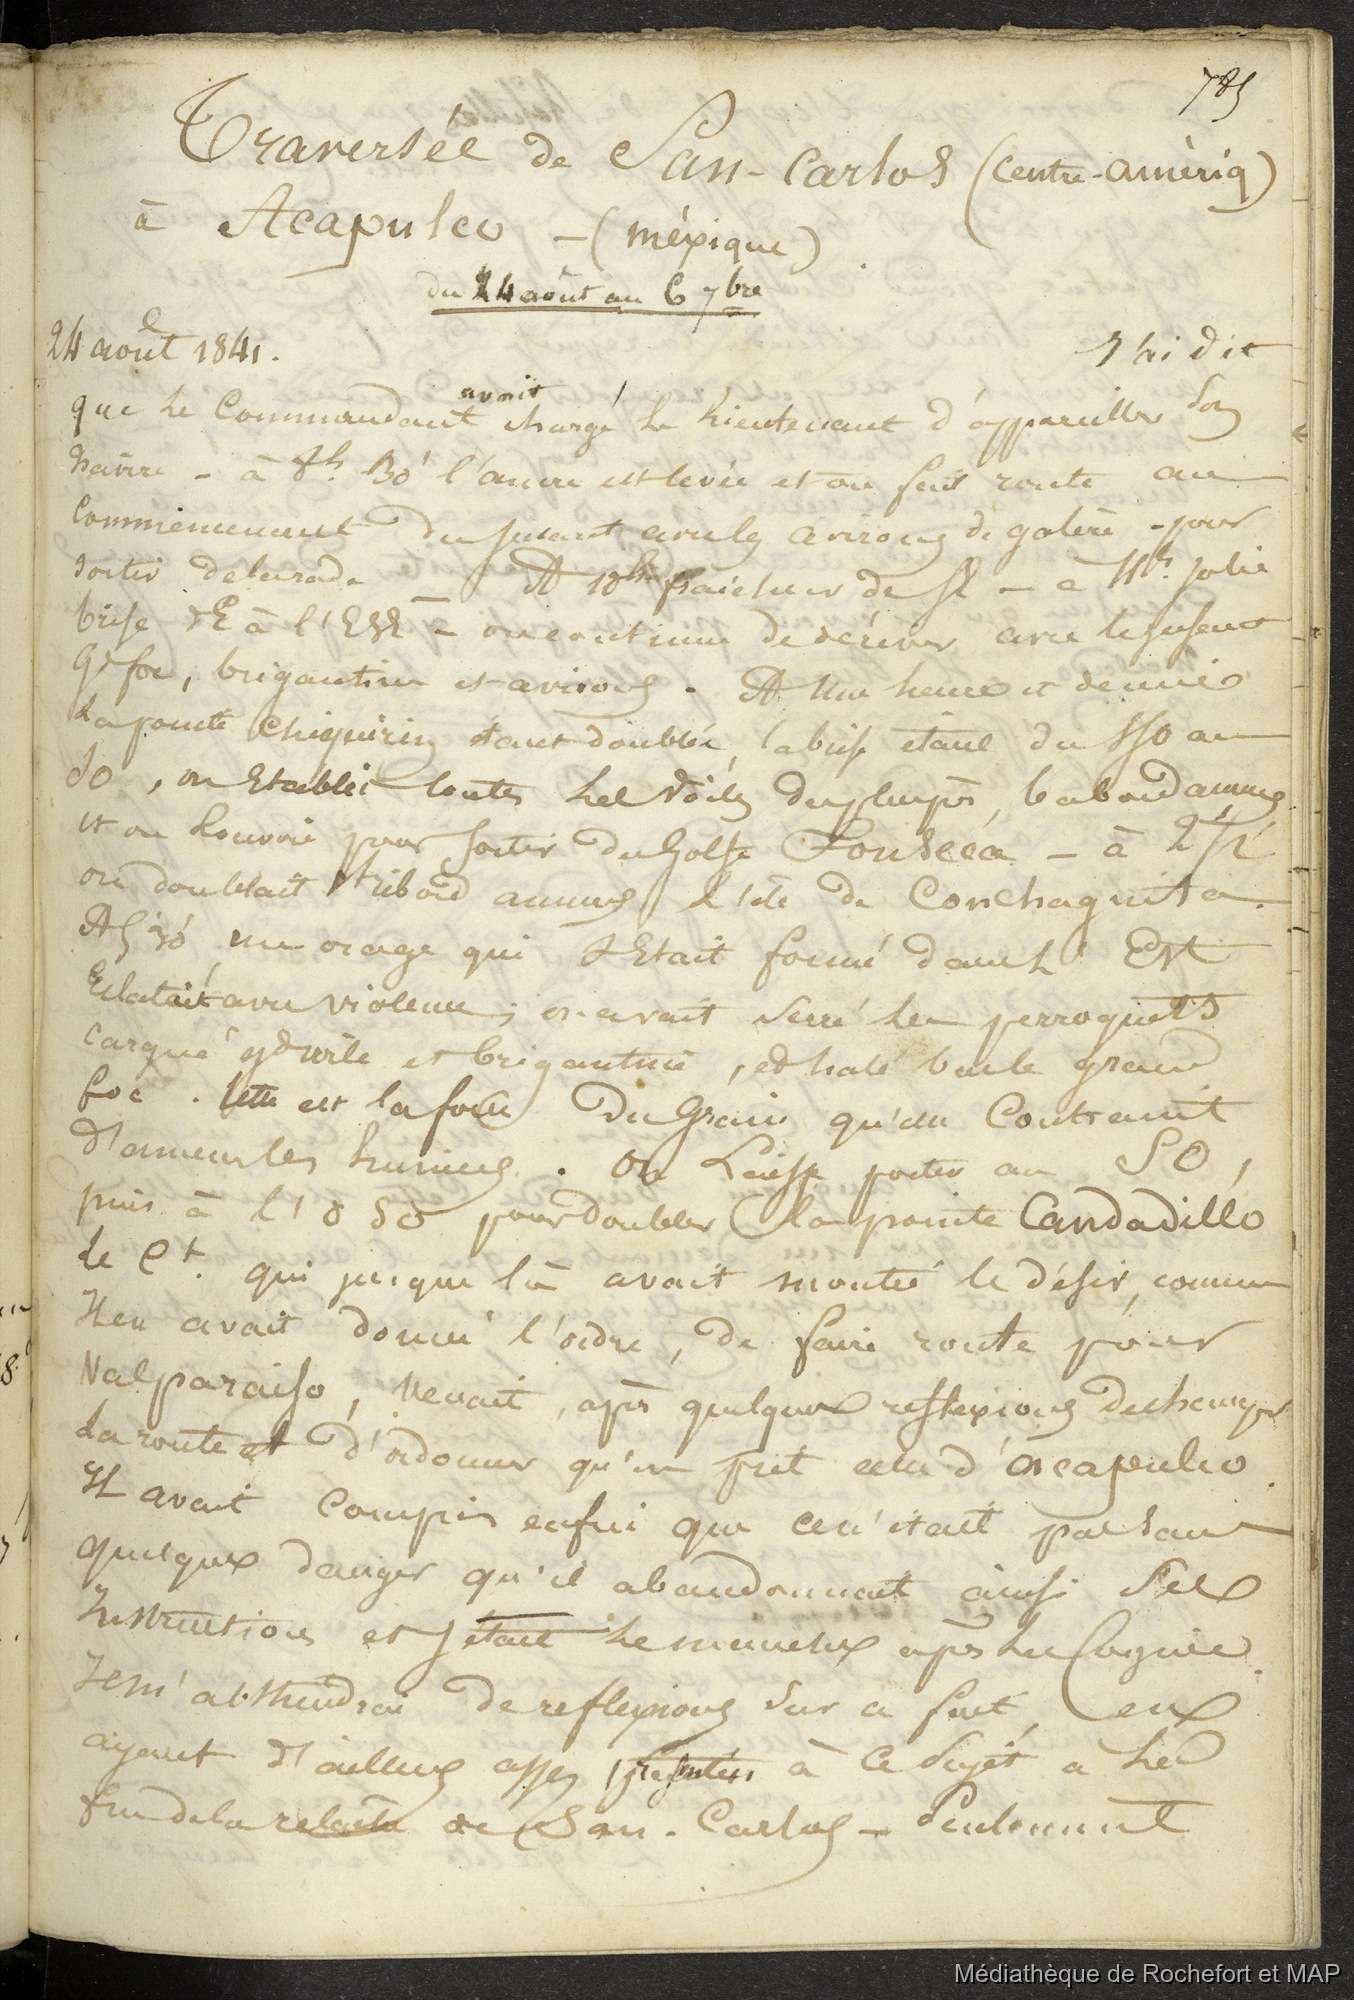 785
Traversée de San-Carlos (centre-amériq)
à Acapulco - (méxique)
du 24 août au 6 7bre
24 août 1841. J'ai dit
avait
que le Commandant chargé le Lieutenant d'appareiller son
navire - à 8h. 30' l'ancre est levée et on fait route au
commencement du jusant avec les avirons de galère - pour
sortir de la rade A 10h. fraicheur de SE - à 11h. jolie
brise d'E à l'ESE - on continue de dériver avec le jusant
Gd foc, brigantine et avirons. A une heure et demie
la pointe Chiquirin étant doublée, la brise étant du SSO au
SO, on établit toutes les voiles du plus près, babord amures
et on louvoie pour sortir du Golfe Fonséca - à 2h 1/2
on doublait tribord amures l'ile de Conchaguita.
A 5h 30' un orage qui s'était formé dans l'Est
éclatait avec violence; on avait serré les perroquets
cargué gde voile et brigantine, et halé bas le grand
foc. telle est la force du Grain qu'on Contraint
d'amener les huniers. On Laisse porter au SO,
puis à l'OSO pour doubler la pointe Candadillo
Le Ct. qui jusque là avait montré le désir, comme
Il en avait donné l'ordre, de faire route pour
Valparaiso, Venait, après quelques reflexions de changer
la route et d'ordonner qu'on prit celle d'acapulco.
Il avait Compris enfin que ce n'était pas sans
quelque danger qu'il abandonnait ainsi ses
Instructions et j'étais
Je m'abstiendrai de reflexions sur ce fait,
ayant d'ailleurs assez à ce sujet à la
fin de la relache de San-Carlos - Seulement
Médiathèque de Rochefort et MAP